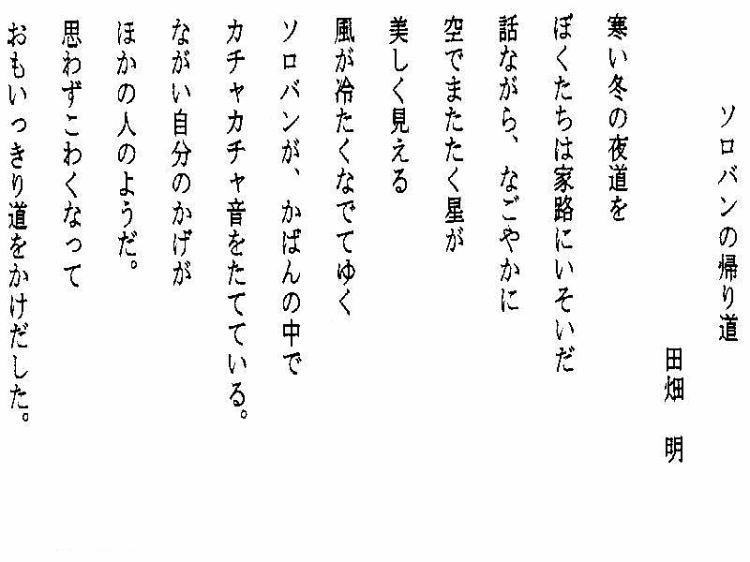 ソロバンの帰り道
田畑　明
寒い冬の夜道を
ぼくたちは家路にいそいだ
話ながら、なごやかに
空でまたたく星が
美しく見える
風が冷たくなでてゆく
ソロバンが、かばんの中で
カチャカチャ音をたてている。
ながい自分のかげが
ほかの人のようだ。
思わずこわくなって
おもいっきり道をかけだした。